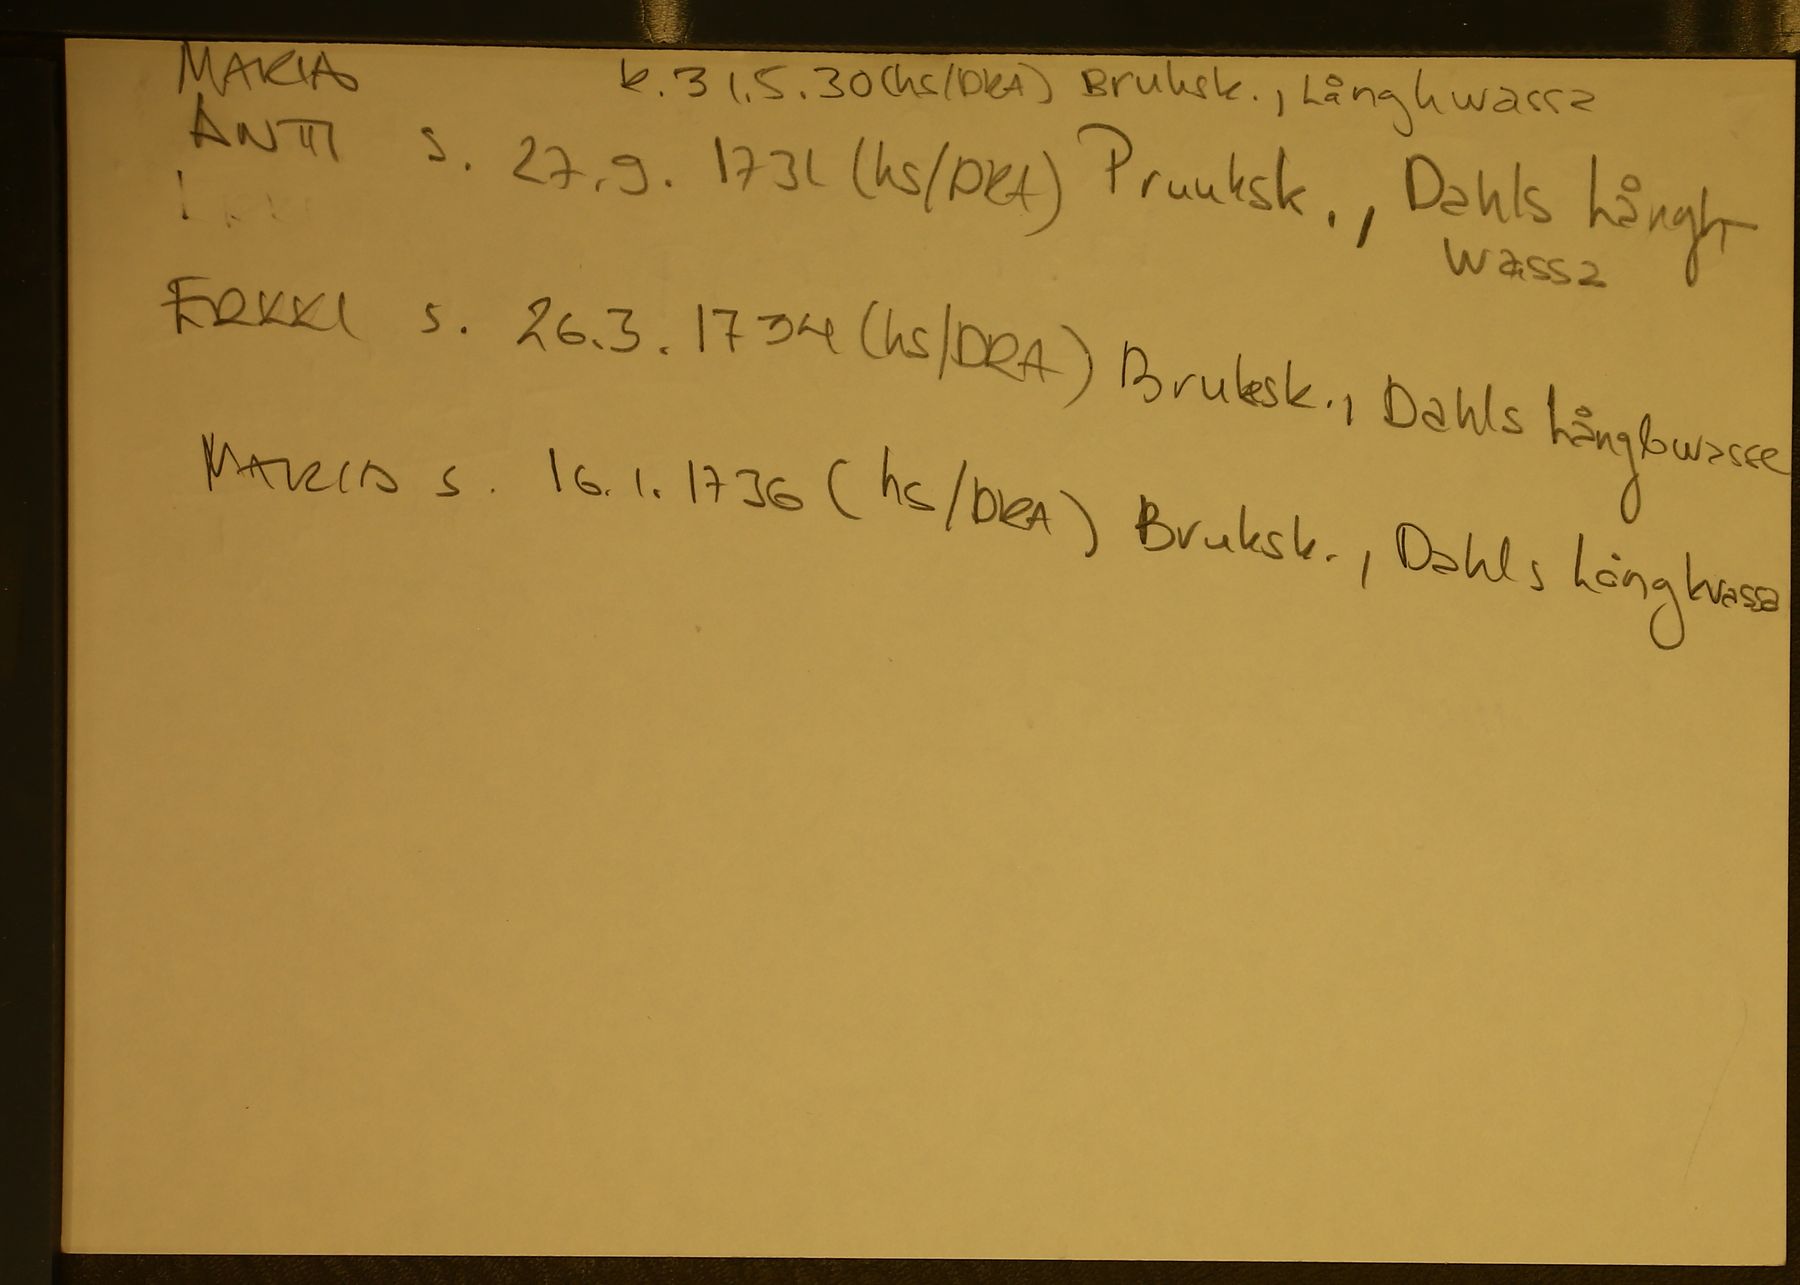 MARIA k. 31.5.30 (hs/DRA) Bruksk., Långhwassa
ANTTI s. 27.9. 1731 (hs/DRA) Pruuksk., Dahls Långh
wassa
ERKKI s. 26.3. 1734 (hs/DRA) Bruksk., Dahls Långhwasse
MARIA s. 16.1. 1736 (hs/DRA) Bruksk., Dahls Långhwassa